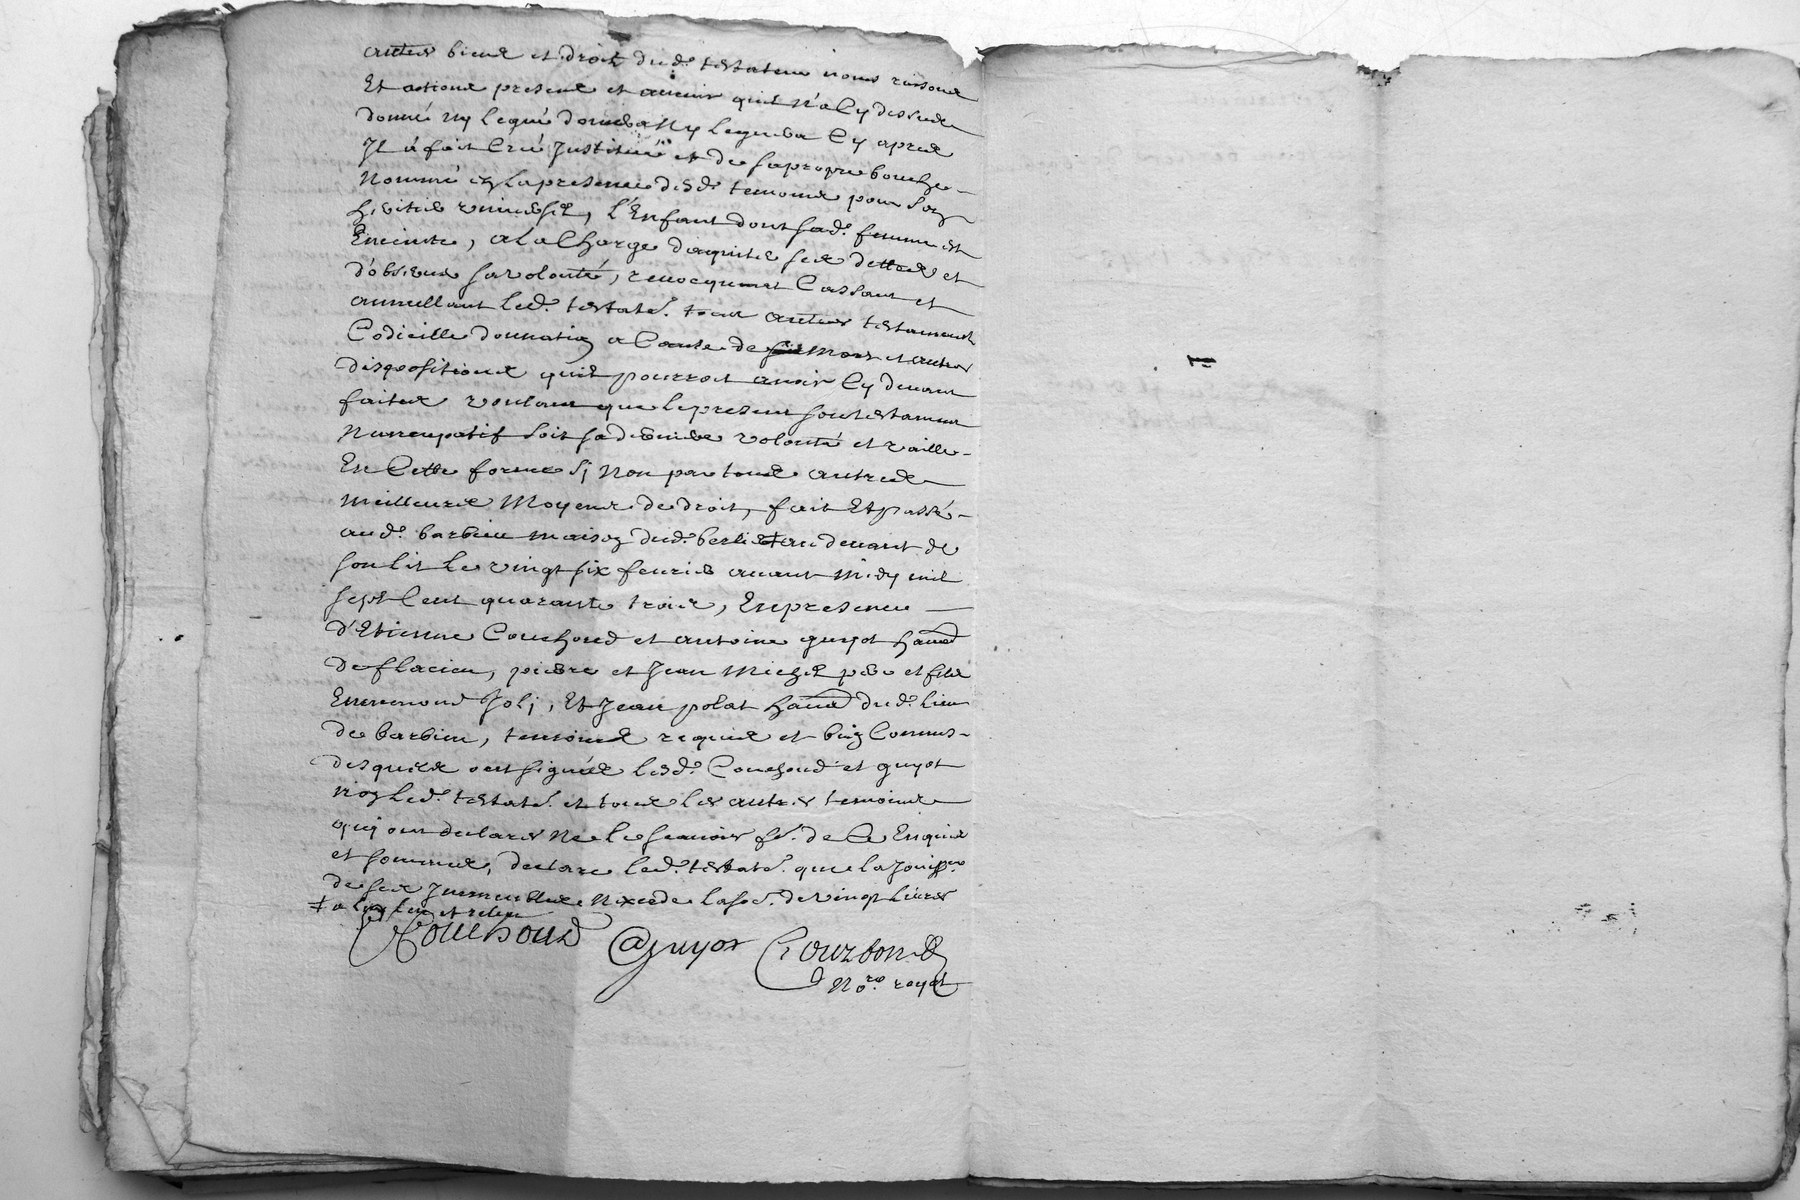 autres biens et droits dud. testateur noms raisons
Et actions presens et auenir quil n'a Cy dessus
donné ny legué donnera Ny leguera Cy apres
Jl á fait Créé Justitué et de sa propre bouche
Nommé en la presence desd. temoins pour son
heritier vniuersel, l'Enfant dont sad. femme est
Enceinte, a la Charge d'aquiter ses dettes et
d'obseruer sa volonté, reuocquant Cassant et
annullant led. testat. tous autres testaments
Codicille donnation a Cause de mort et autres
dispositions quil pourroit auoir Cy deuant
faites voulant que le present son testament
Nuncupatif soit sa derniere volonté et vaille
En Cette forme si Non par tous autres
meilleurs Moyens de droit, fait Et passé
aud. barbieu maison dud. berlie ‡ au deuant de
son lit le vingt six feurier auant Midy mil
sept Cent quarante trois, En presence
d'Etienne Couchoud et antoine guyot habitants
de flacieu, pierre et Jean Michel pere et fils
Ennemond Joli, Et Jean polat habitants dud. lieu
de barbieu, temoins requis et bien Connus
desquels ont signés lesd. Couchoud et guyot
non led. testat. et tous les autres temoins
qui ont declarer Ne le scauoir f. de Ce Enquis
et sommés, declare led. testat. que la Jouiss.
de ses Jmmeubles N'excede la so. de vingt liures
Couchoud @guyot Courbon
No.re royal